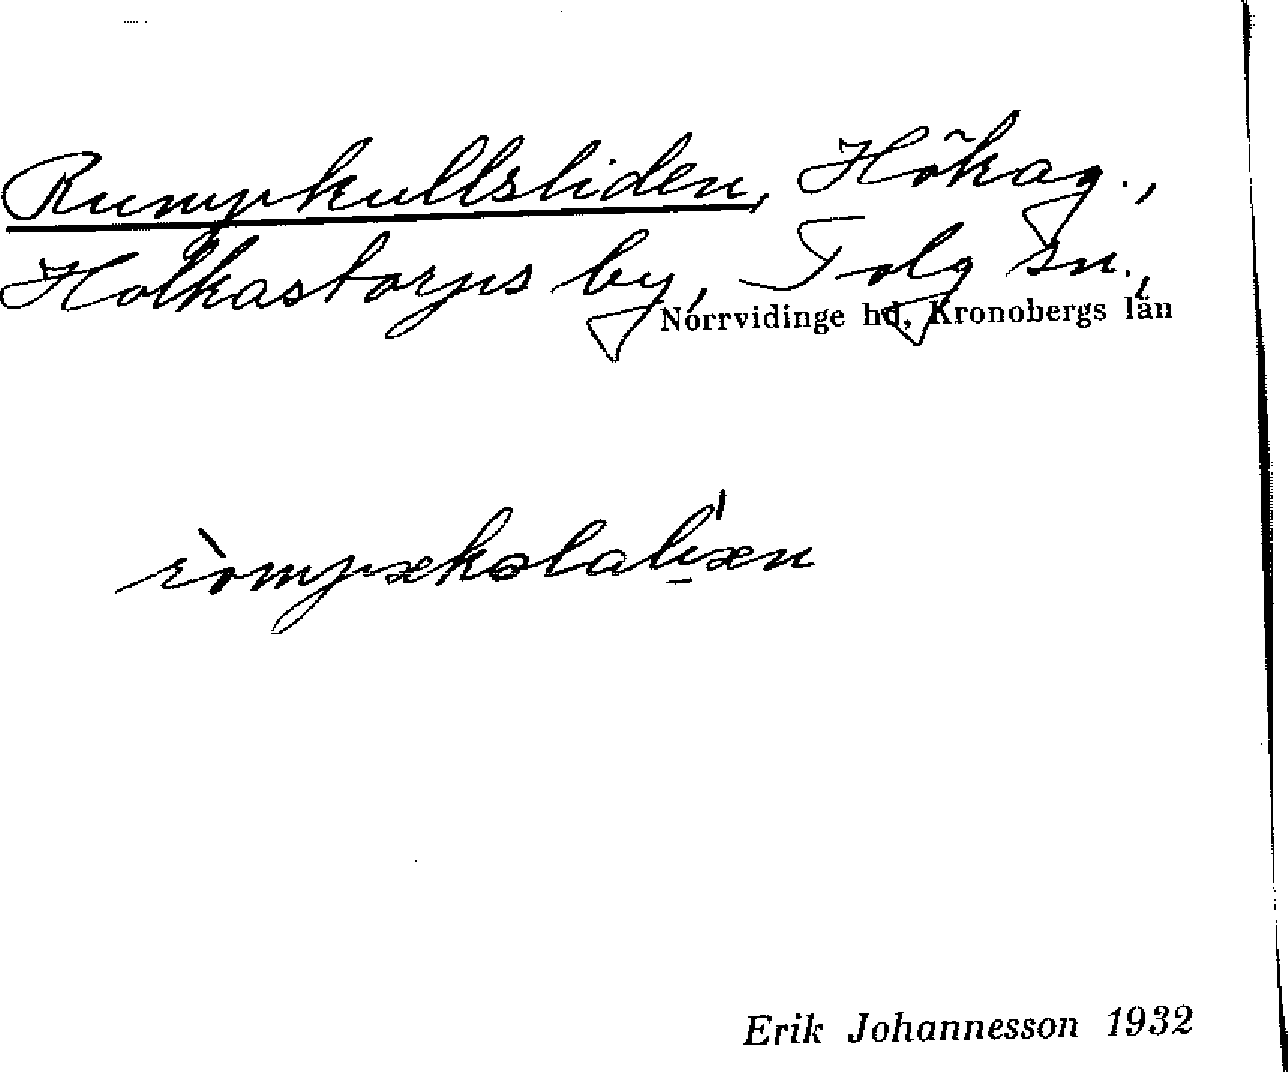 Rumpkullsliden, Hökag.,
Holkastorps by, Tolg sn.,
Norrvidinge hd, Kronobergs län
Erik Johannesson 1932